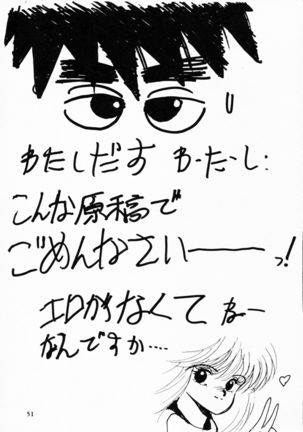 わたしだす わーたーし:
こんな原稿で
ごめんなさい――っ!
エロがなくて なー
なんですか‥‥
51